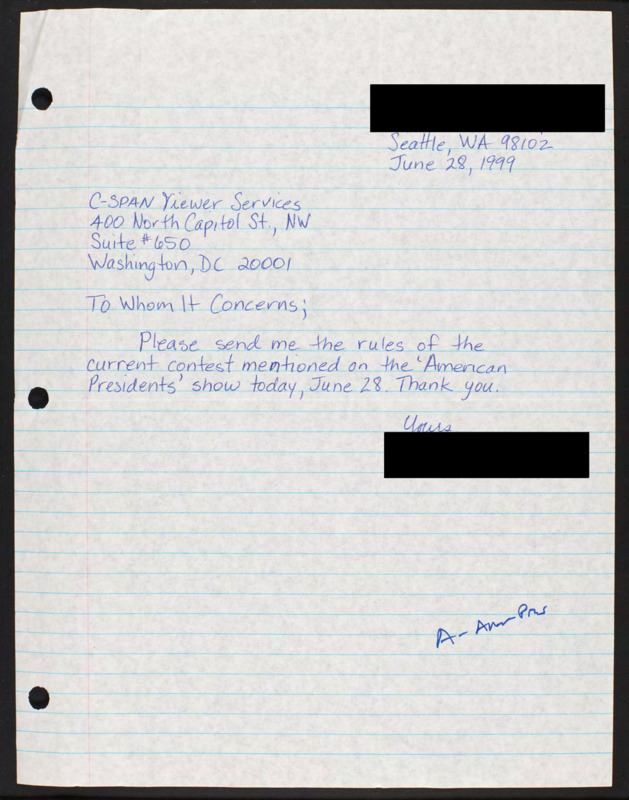 Seattle, WA 98102
June 28, 1999
C-SPAN Viewer Services
400 North Capitol St., NW
Suite #650
Washington, DC 20001
To Whom It Concerns;
Please send me the rules of the
current contest mentioned on the 'American
Presidents' show today, June 28. Thank you.
Yours
A- Am Pres